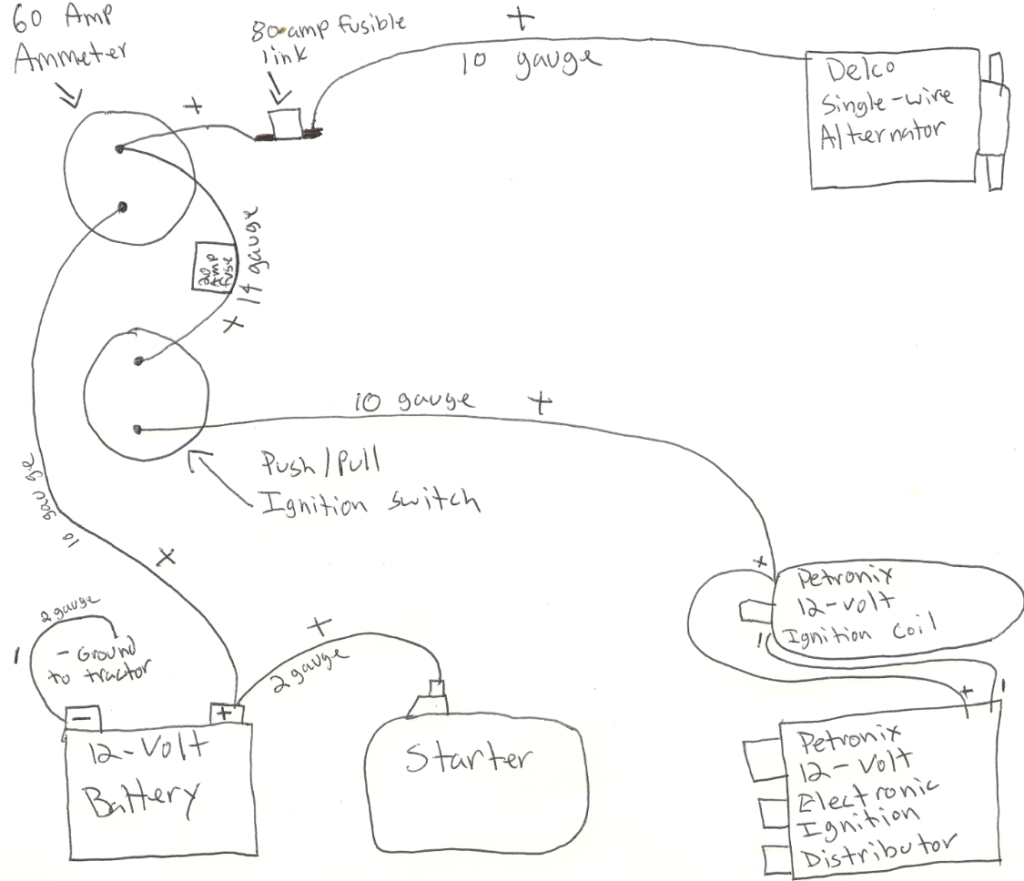 60 Amp
Ammeter
80 amp fusible
link
+
10 gauge
Delco
Single-wire
Alternator
+
20
Amp
fuse
14 gauge
+
10 gauge +
Push/Pull
Ignition switch
10 gauge
+
2 gauge
-
- Ground
to tractor
+
2 gauge
- +
12-Volt
Battery
Starter
+
Petronix
12-volt
Ignition Coil
-
+ -
Petronix
12-Volt
Electronic
Ignition
Distributor